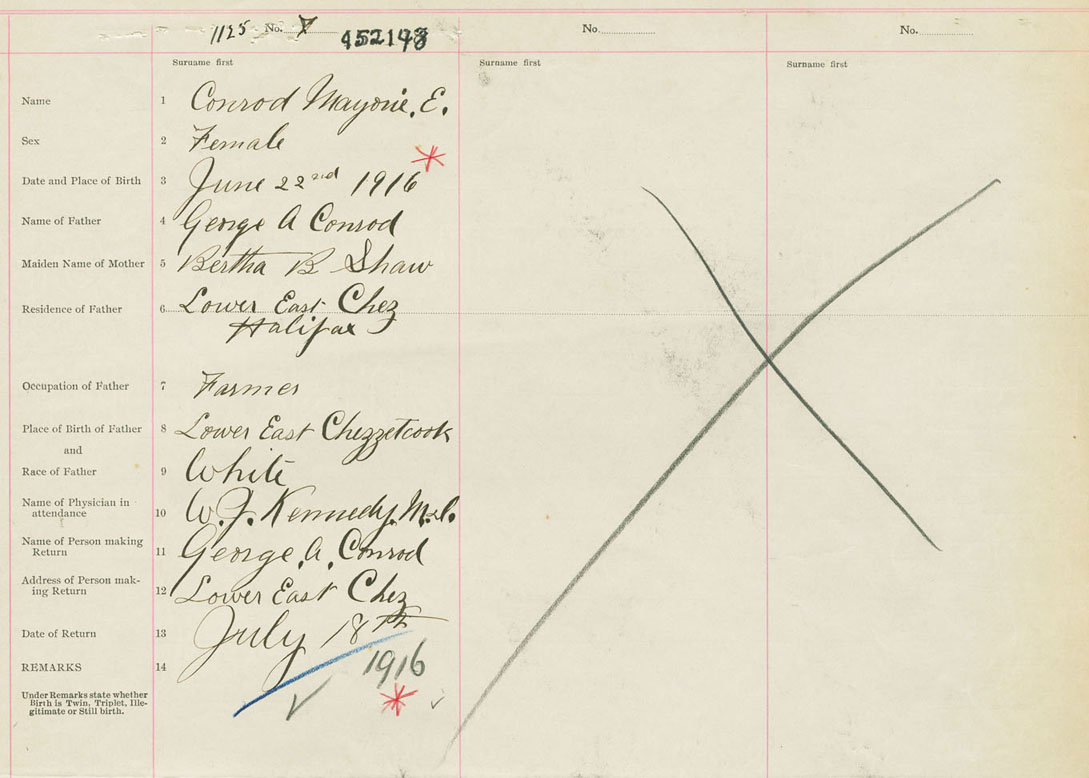 1125 No. 7 452148 No. No.
Surname first Surname first Surname first
Name 1 Conrod Mayorie, E.
Sex 2 Female
Date and Place of Birth 3 June 22nd 1916
Name of Father 4 George A Conrod
Maiden Name of Mother 5 Bertha B Shaw
Residence of Father 6 Lower East Chez
Halifax
Occupation of Father 7 Farmer
Place of Birth of Father 8 Lower East Chezzetcook
and
Race of Father 9 White
Name of Physician in
attendance 10 W. J. Kennedy, M.d.
Name of Person making
Return 11 George, A, Conrod
Address of Person mak-
ing Return 12 Lower East Chez
Date of Return 13 July 18th
REMARKS 14 1916
Under Remarks state whether
Birth is Twin, Triplet, Ille-
gitimate or Still birth.